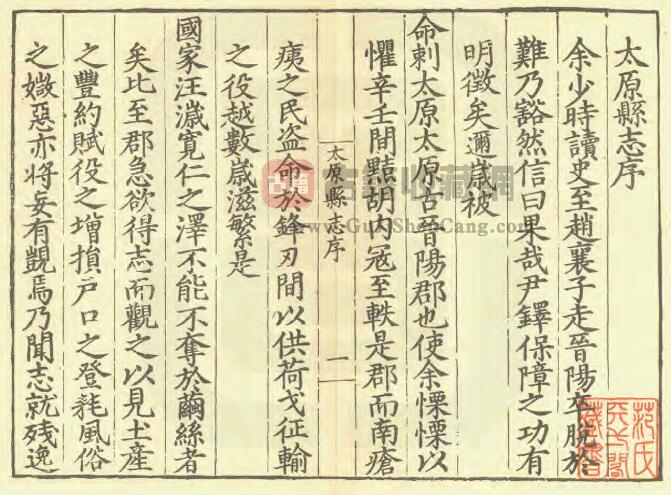 太原縣志序
余少時讀史至趙襄子走晉陽卒脫於
難乃豁然信曰果哉尹鐸保障之功有
明徵矣邇歲被
命刺太原太原古晉陽郡也使余慄慄以
懼辛壬間黠胡内冦至軼是郡而南瘡
太原縣志序 一
痍之民盗命於鋒刃間以供荷戈征輸
之役越數歲滋繁是
國家汪濊寛仁之澤不能不奪於繭絲者
矣比至郡急欲得志而觀之以見土產
之豐約賦役之增損户口之登耗風俗
之媺惡亦將妄有覬焉乃聞志就残逸
范氏天一閣藏書
www.GuJiShouCang.com